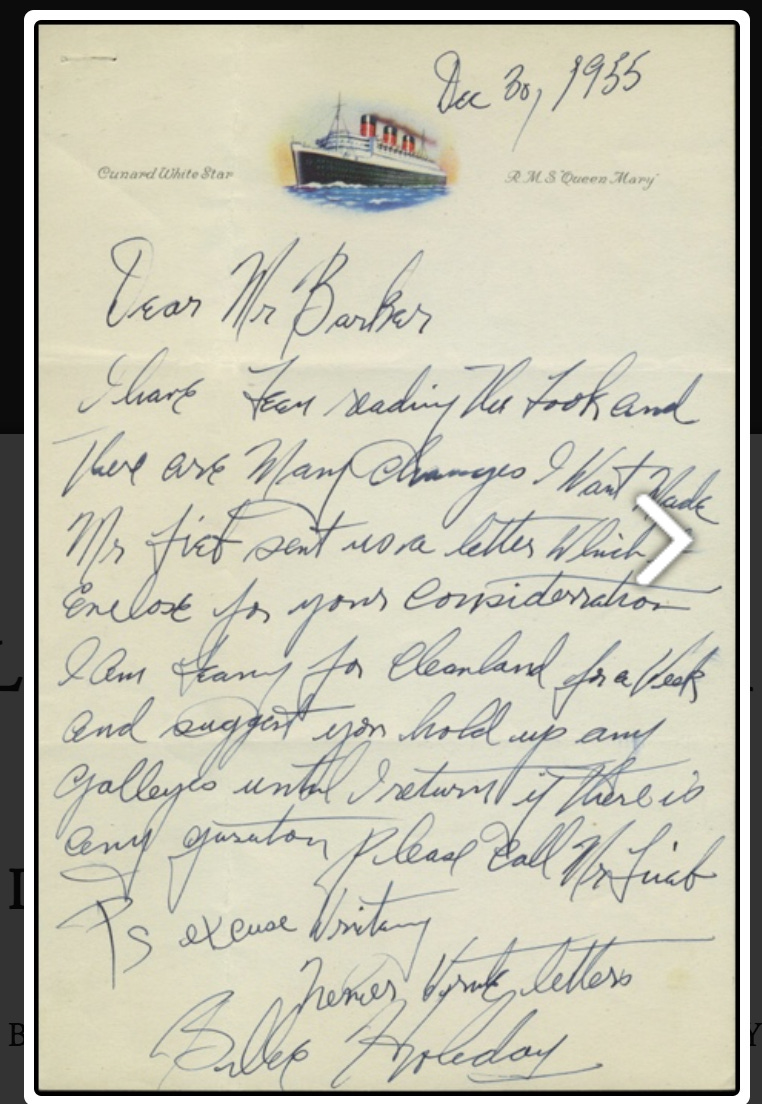 Dec 30, 1955
Cunard White Star
R.M.S "Queen Mary"
Dear Mr Barker
I have been reading the book and
There are Many Changes I Want Made
Mr sent us a letter Which
Enclose for your Consideration
I am for Cleanland for a Week
and suggest you hold up any
Galleyes until I return if There is
any please Call Mr
Ps excuse Writing
letters
Billie Holiday